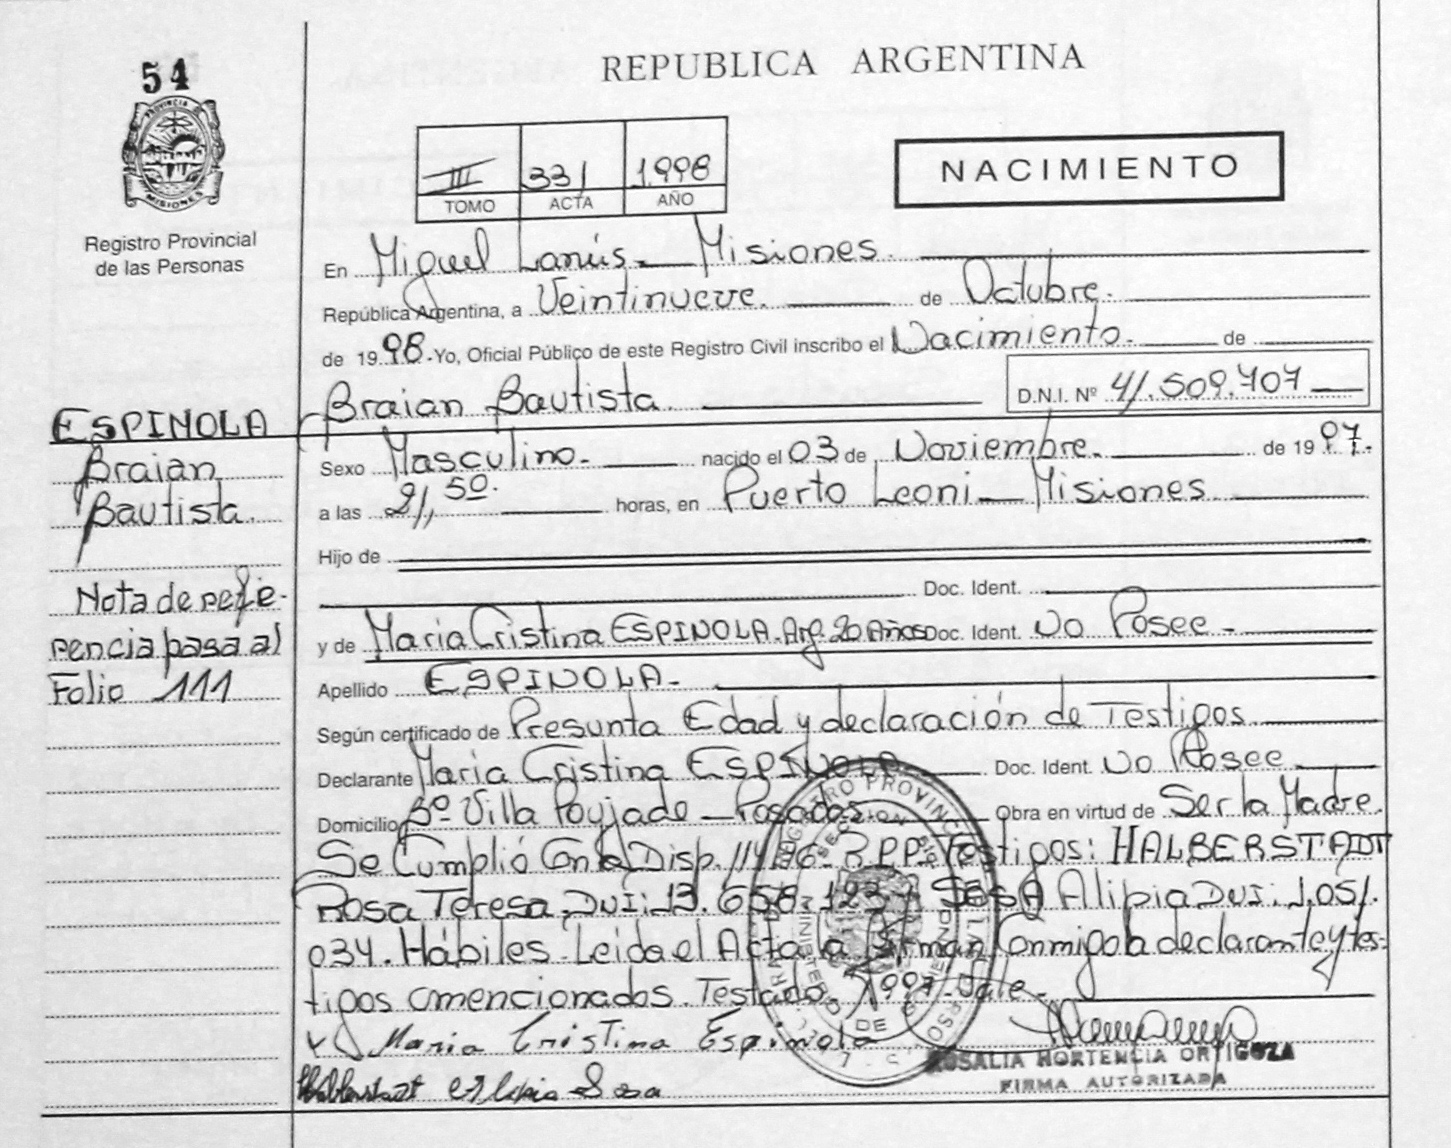 54
PROVINCIA DE
MISIONES
Registro Provincial
de las Personas
REPUBLICA ARGENTINA
III 331 1.998
TOMO ACTA AÑO
NACIMIENTO
En Miguel Lanús - Misiones.
República Argentina, a Veintinueve. de Octubre.
de 1998.-Yo, Oficial Público de este Registro Civil inscribo el Nacimiento. de
Braian Bautista. D.N.I. Nº 41.509.707
ESPINOLA
Braian
Bautista.
Sexo Masculino.- nacido el 03 de Noviembre. de 1997.
a las 21,50. horas, en Puerto Leoni - Misiones
Hijo de
Doc. Ident.
Nota de refe-
rencia pasa al
Folio 111
y de Maria Cristina ESPINOLA. Arg. 20 Años Doc. Ident. No Posee -
Apellido ESPINOLA.-
Según certificado de Presunta Edad y declaración de Testigos
Declarante Maria Cristina ESPINOLA Doc. Ident. No Posee
Domicilio Bº Villa Poujade - Posadas. Obra en virtud de Ser la Madre.
Se Cumplió Con la Disp. R.P.P. Testigos: HALBERSTADT
Rosa Teresa, Dui: 13.658.123 y SOSA Alipia Dui: 1.051.
034. Hábiles. Leida el Acta la Firman Conmigo la declarante y tes-
tigos mencionados. Testado. 1997. Vale.
Maria Cristina Espinola
Alipia Sosa
ROSALIA HORTENCIA ORTIGOZA
FIRMA AUTORIZADA